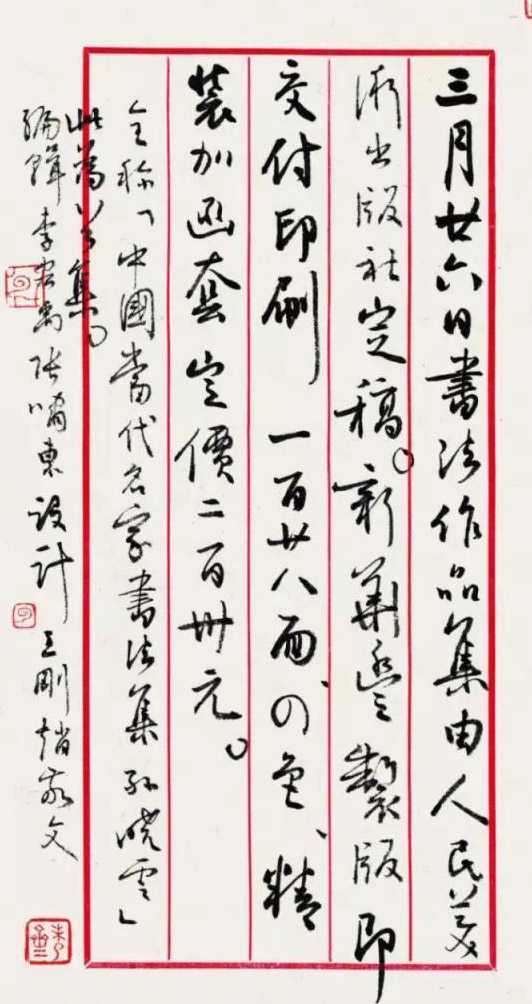 三月廿六日書法作品集由人民美
術出版社定稿。新華豐製版即
交付印刷 一百廿八面、四色、精
装加函套定價二百卅元。
全称「中國當代名家書法集 孫曉雲」
此為公集。
編輯 李宏禹 張嘯東 設計 王剛 趙家文